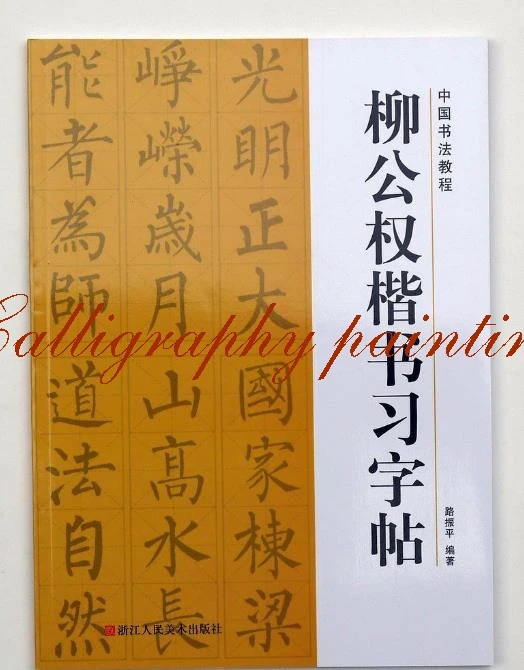 中国书法教程
柳公权楷书习字帖
路振平 编著
光明正大國家棟梁
崢嶸歲月山高水長
能者為師道法自然
浙江人民美术出版社
Calligraphy paintin